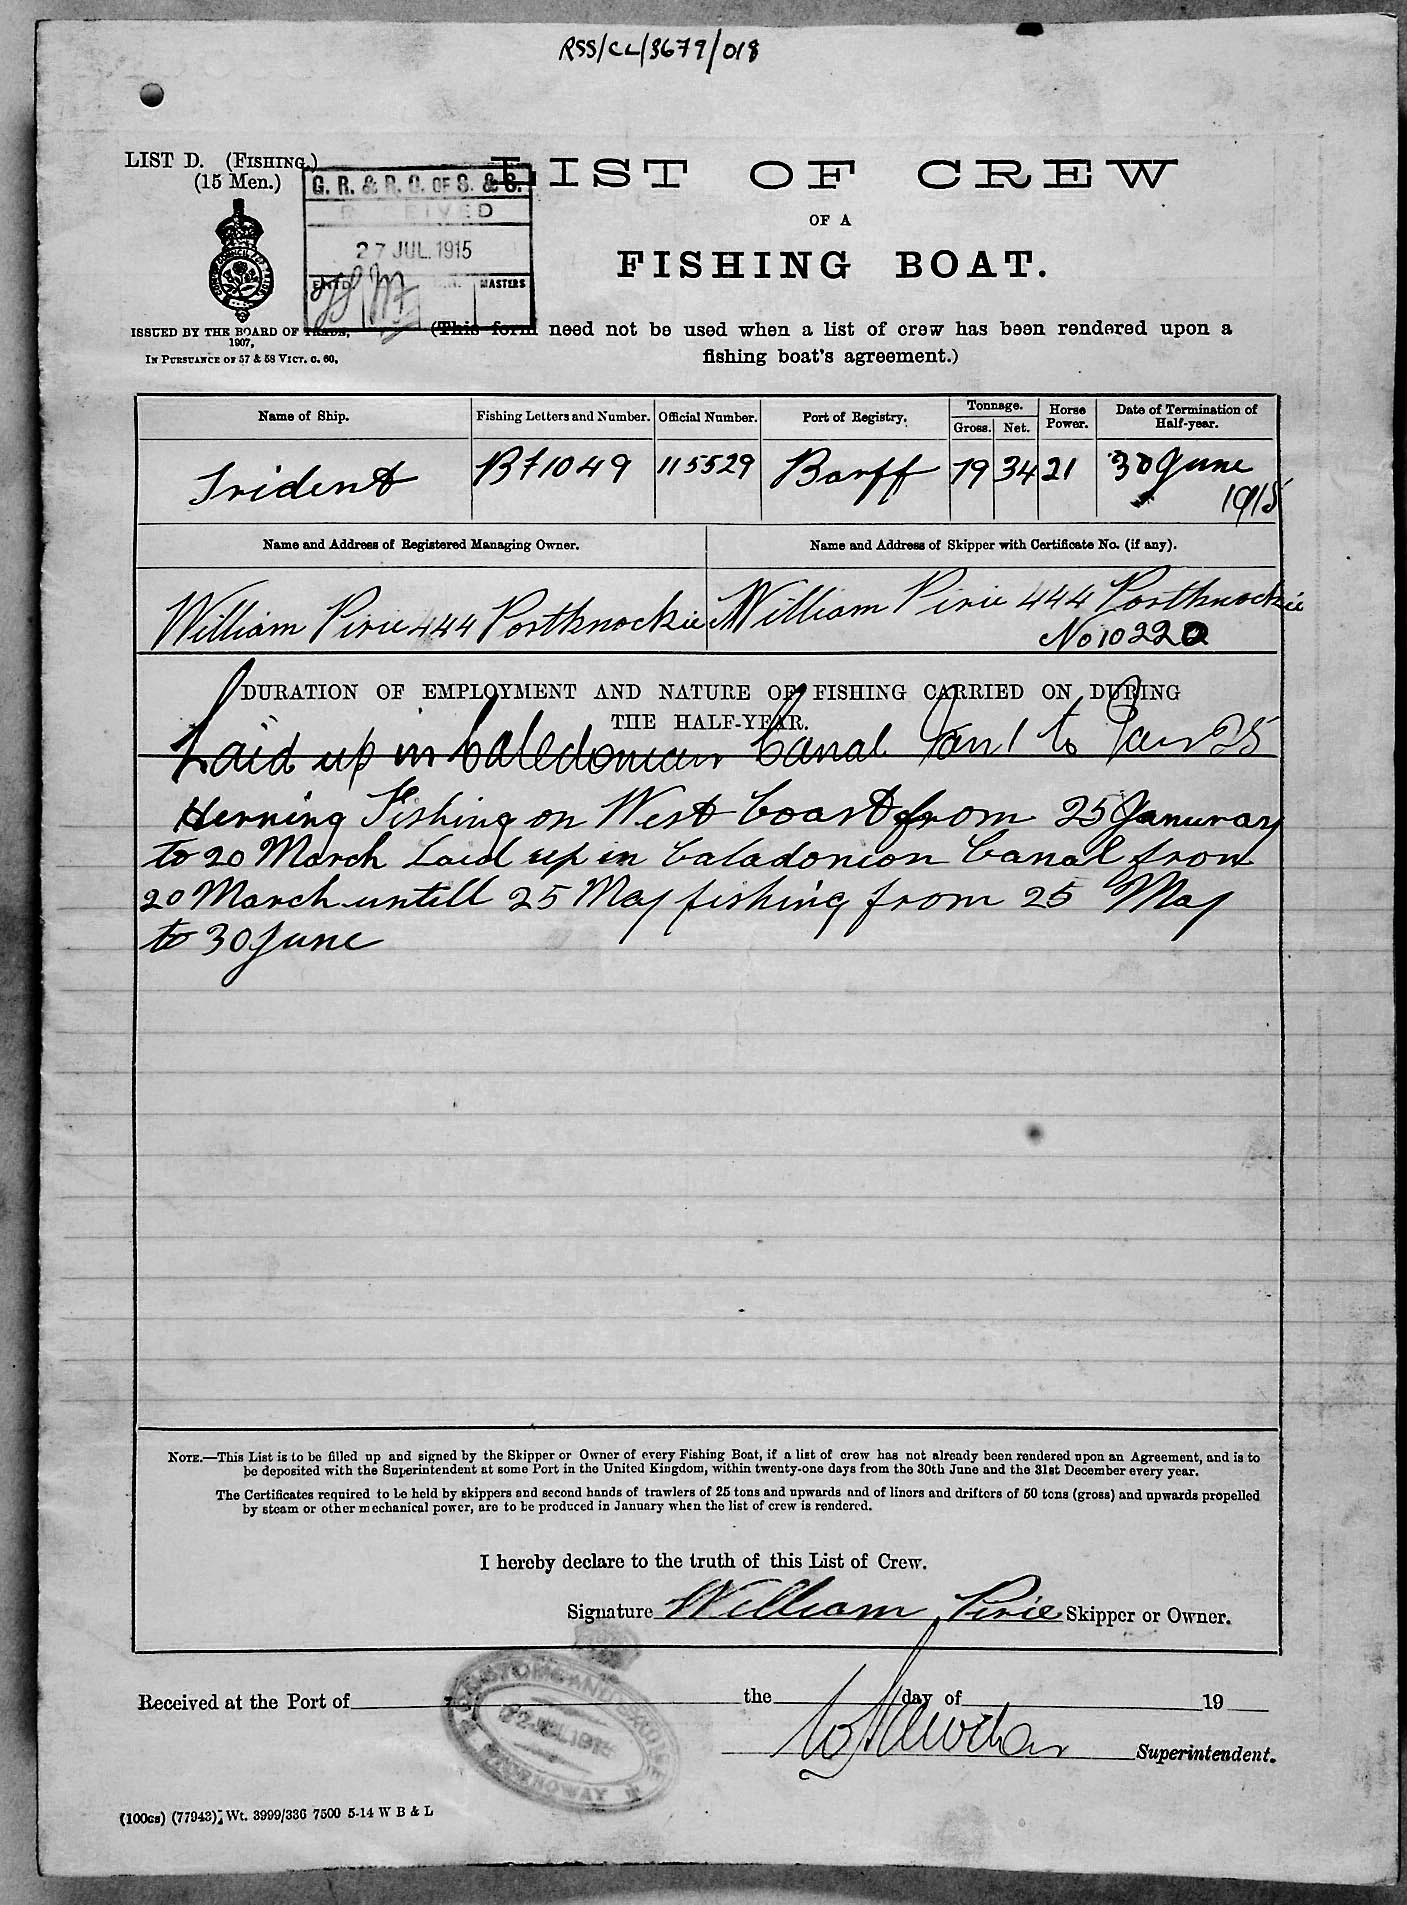 RSS/CL/3679/018
LIST D. (FISHING.)
(15 Men.)
G. R. & R. G. OF S. & S.
RECEIVED
27 JUL. 1915
ENTD.
MASTERS
LIST OF CREW
OF A
FISHING BOAT.
ISSUED BY THE BOARD OF TRADE,
1907,
IN PURSUANCE OF 57 & 58 VICT. C. 60.
(This form need not be used when a list of crew has been rendered upon a
fishing boat's agreement.)
Name of Ship. Fishing Letters and Number. Official Number. Port of Registry. Tonnage. Gross. Net. Horse Power. Date of Termination of Half-year.
Trident BF1049 115529 Banff 79 34 21 30 June
1915
Name and Address of Registered Managing Owner. Name and Address of Skipper with Certificate No. (if any).
William Pirie 444 Portknockie William Pirie 444 Portknockie
No 10220
DURATION OF EMPLOYMENT AND NATURE OF FISHING CARRIED ON DURING
THE HALF-YEAR.
Laid up in Caledonian Canal Jan 1 to Jan 25
Herring Fishing on West Coast from 25 Januray
to 20 March Laid up in Caladonion Canal from
20 March untill 25 May fishing from 25 May
to 30 June
NOTE.—This List is to be filled up and signed by the Skipper or Owner of every Fishing Boat, if a list of crew has not already been rendered upon an Agreement, and is to
be deposited with the Superintendent at some Port in the United Kingdom, within twenty-one days from the 30th June and the 31st December every year.
The Certificates required to be held by skippers and second hands of trawlers of 25 tons and upwards and of liners and drifters of 50 tons (gross) and upwards propelled
by steam or other mechanical power, are to be produced in January when the list of crew is rendered.
I hereby declare to the truth of this List of Crew.
Signature William Pirie Skipper or Owner.
Received at the Port of the day of 19
CUSTOMS AND EXCISE
22 JUL 1915
STORNOWAY
Superintendent.
(100GS) (77943). Wt. 3999/336 7500 5-14 W B & L